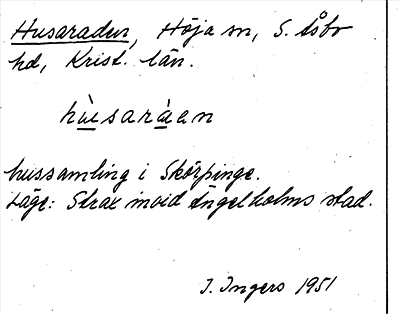 Husaraden, Höja sn, S. Åsbo
hd, Krist. län.
hùsaràen
hussamling i Skörpinge.
Läge: Strax invid Ängelholms stad.
I. Ingers 1951